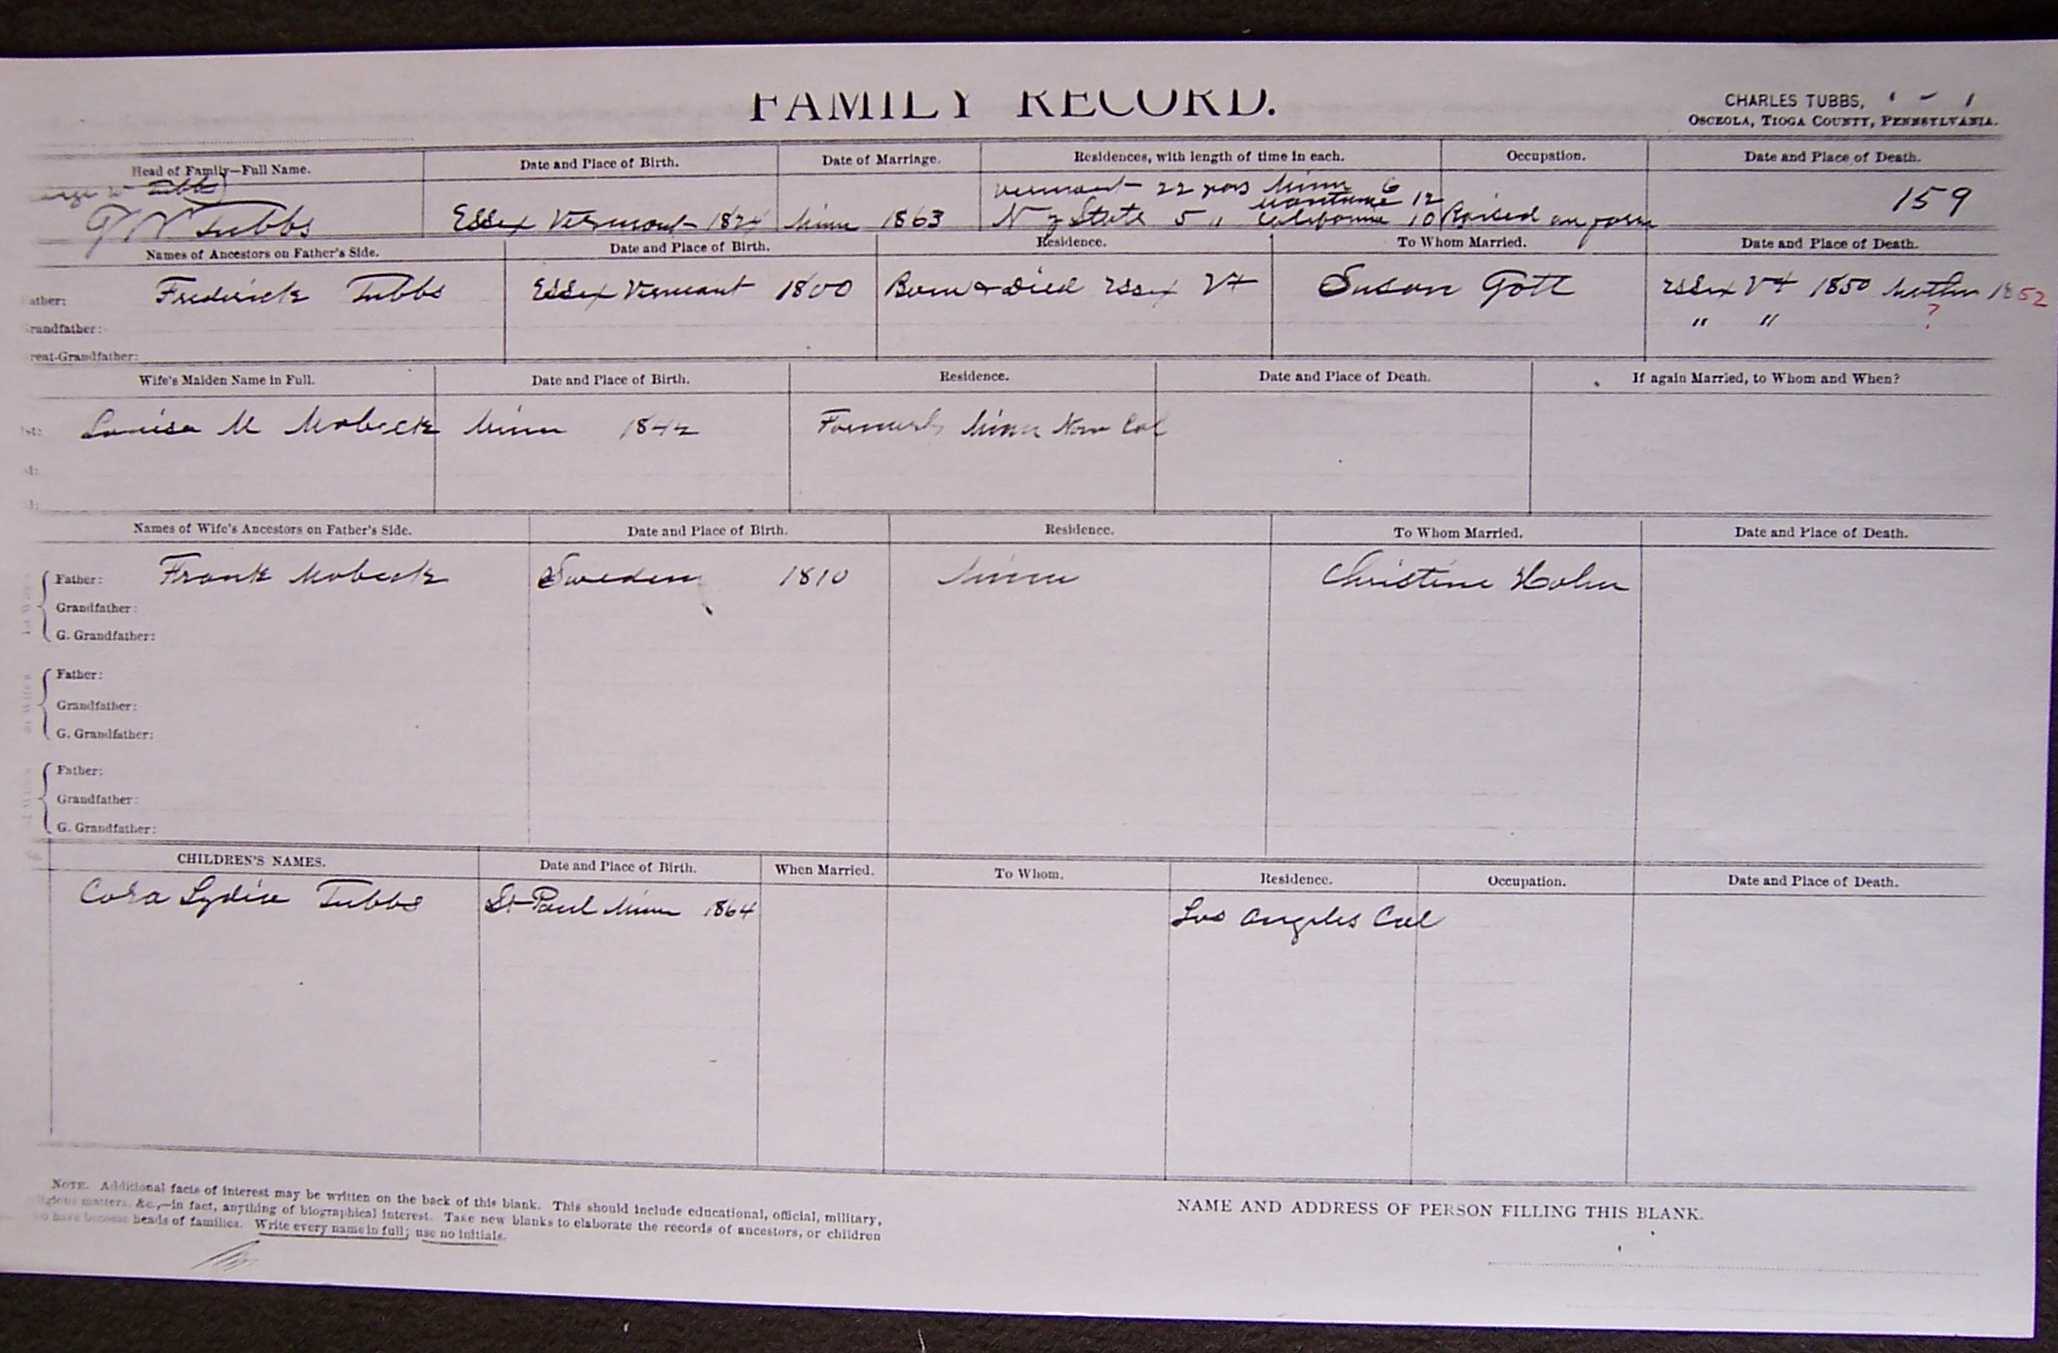 FAMILY RECORD.
CHARLES TUBBS,
OSCEOLA, TIOGA COUNTY, PENNSYLVANIA.
Head of Family—Full Name. Date and Place of Birth. Date of Marriage. Residences, with length of time in each. Occupation. Date and Place of Death.
W Tubbs Vermont 22 years Minn 6 159
Montana 12
G W Tubbs Essex Vermont 1824 Minn 1863 N Y State 5 " California 10 Raised on farm
Names of Ancestors on Father's Side. Date and Place of Birth. Residence. To Whom Married. Date and Place of Death.
ather: Frederick Tubbs Essex Vermont 1800 Born & Died Essex Vt Susan Gott Essex Vt 1850 Mother 1852
randfather: " " ?
reat-Grandfather:
Wife's Maiden Name in Full. Date and Place of Birth. Residence. Date and Place of Death. If again Married, to Whom and When?
1st: Louisa M Mobeck Minn 1842 Formerly Minn Now Cal
d:
d:
Names of Wife's Ancestors on Father's Side. Date and Place of Birth. Residence. To Whom Married. Date and Place of Death.
Father: Frank Mobeck Sweden 1810 Minn Christine Holm
Grandfather:
G. Grandfather:
Father:
Grandfather:
G. Grandfather:
Father:
Grandfather:
G. Grandfather:
CHILDREN'S NAMES. Date and Place of Birth. When Married. To Whom. Residence. Occupation. Date and Place of Death.
Cora Lydia Tubbs St Paul Minn 1864 Los Angeles Cal
NOTE. Additional facts of interest may be written on the back of this blank. This should include educational, official, military,
religious matters, &c.,—in fact, anything of biographical interest. Take new blanks to elaborate the records of ancestors, or children
who have become heads of families. Write every name in full; use no initials.
NAME AND ADDRESS OF PERSON FILLING THIS BLANK.